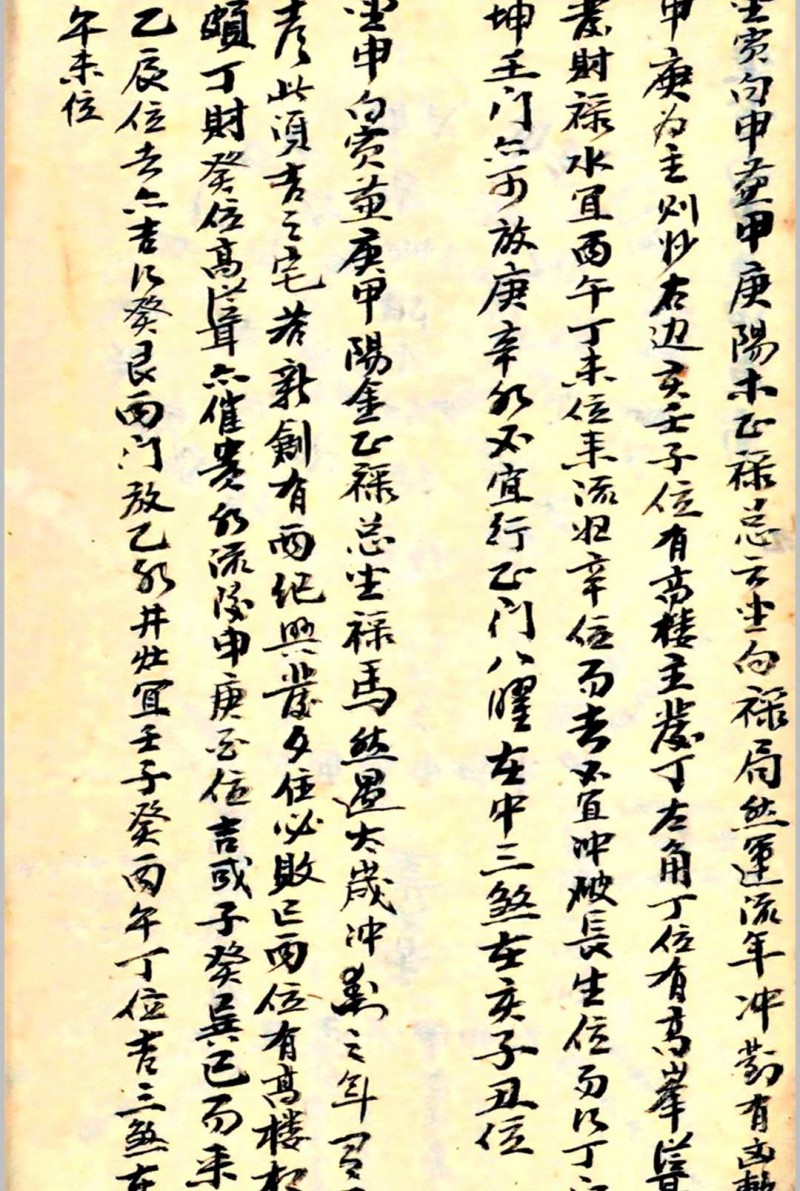 坐寅向申兼甲庚陽木正祿忌云坐向祿局然運流年冲對有凶
申庚为主则妙右边亥壬子位有高楼主發丁左角丁位有高峯
發財祿水宜酉午丁未位来流归辛位而去不宜冲破長生位而以丁
坤壬门亦可放庚辛水不宜行正门八曜在中三煞在亥子丑位
坐申向寅兼庚甲陽金正祿总坐祿馬然遇太歲冲對之年
彦此須吉之宅若新創有兩纪興發久住必敗巳酉位有高楼
頗丁財癸位高耸亦催贵水流後申庚酉位吉或子癸巽巳而来
乙辰位去亦吉以癸艮两门放乙水井灶宜壬子癸酉午丁位吉三煞在
午未位